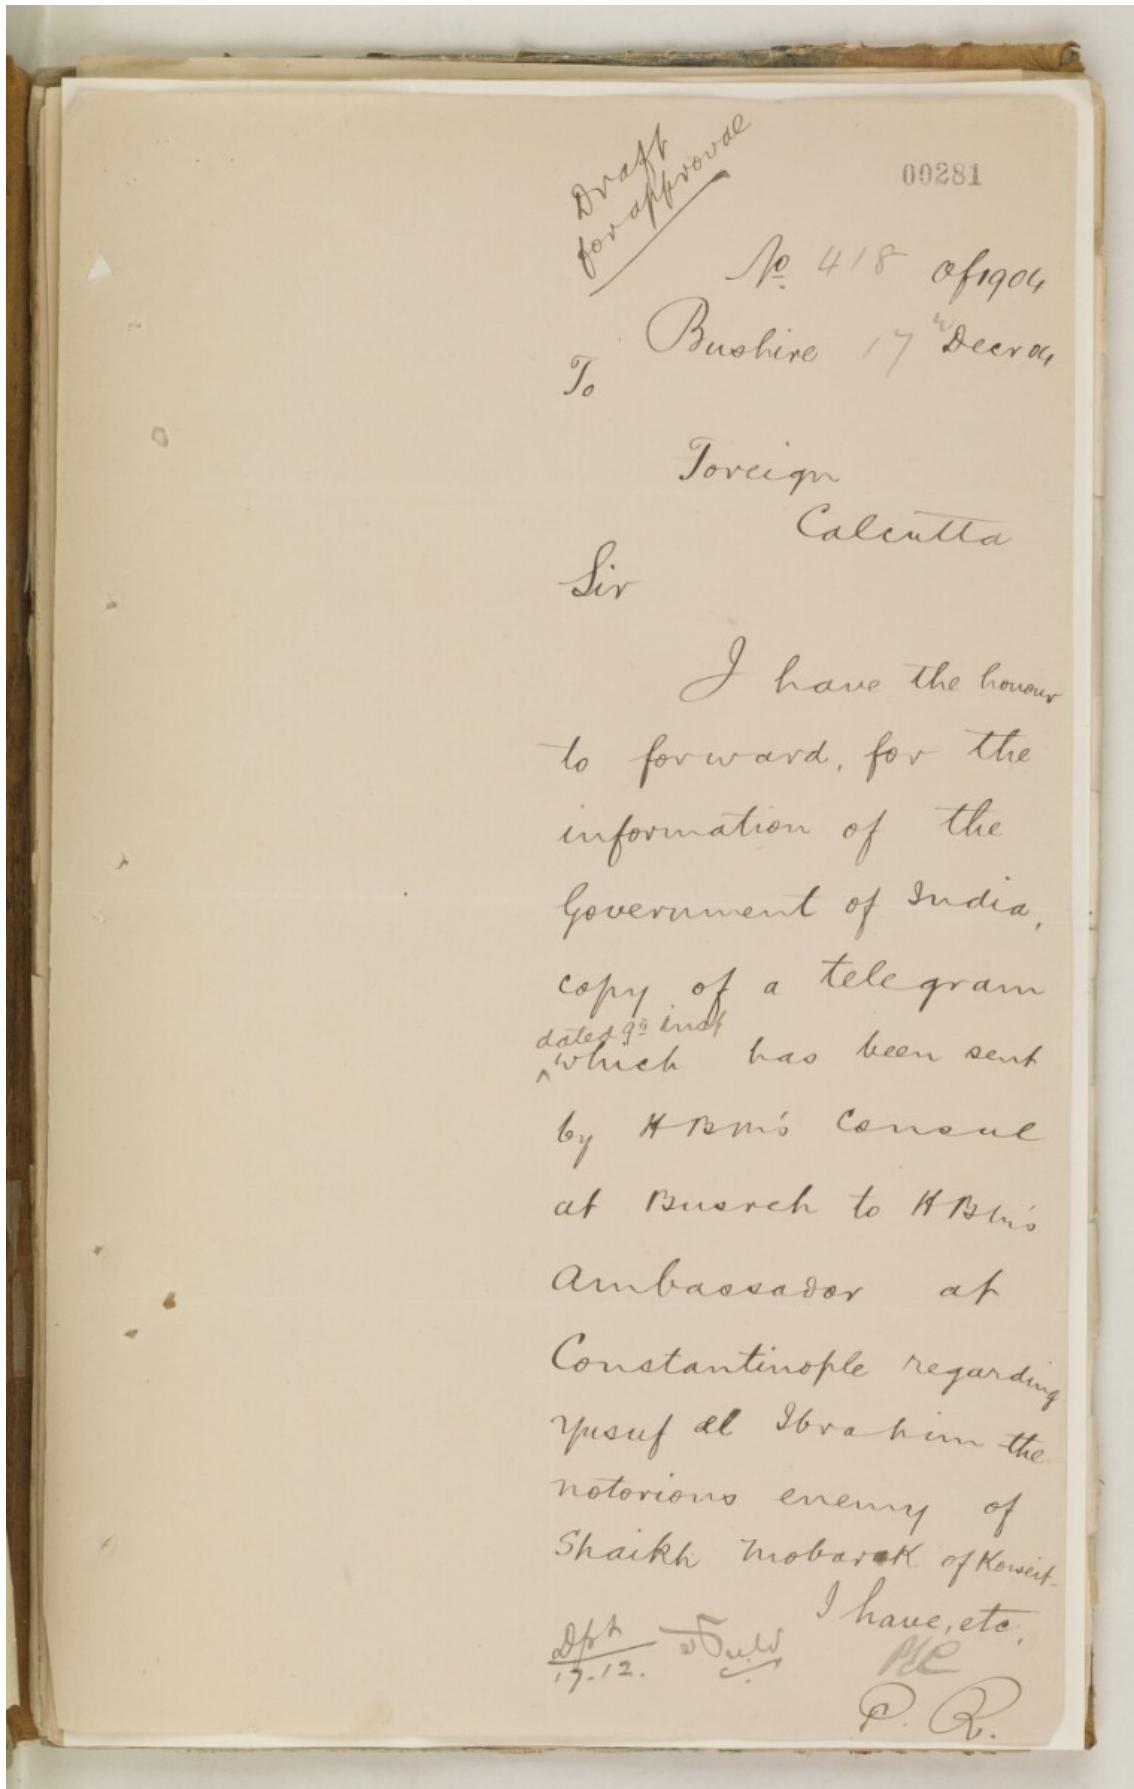 Draft
for approval
00281
No. 418 of 1904
Bushire 17th Decr 04
To
Foreign
Calcutta
Sir
I have the honour
to forward, for the
information of the
Government of India,
copy of a telegram
dated 9th inst
^which has been sent
by HBM's Consul
at Busreh to HBM's
Ambassador at
Constantinople regarding
Yusuf al Ibrahim the
notorious enemy of
Shaikh Mobarak of Koweit.
I have, etc,
Dft
17.12.
P. R.